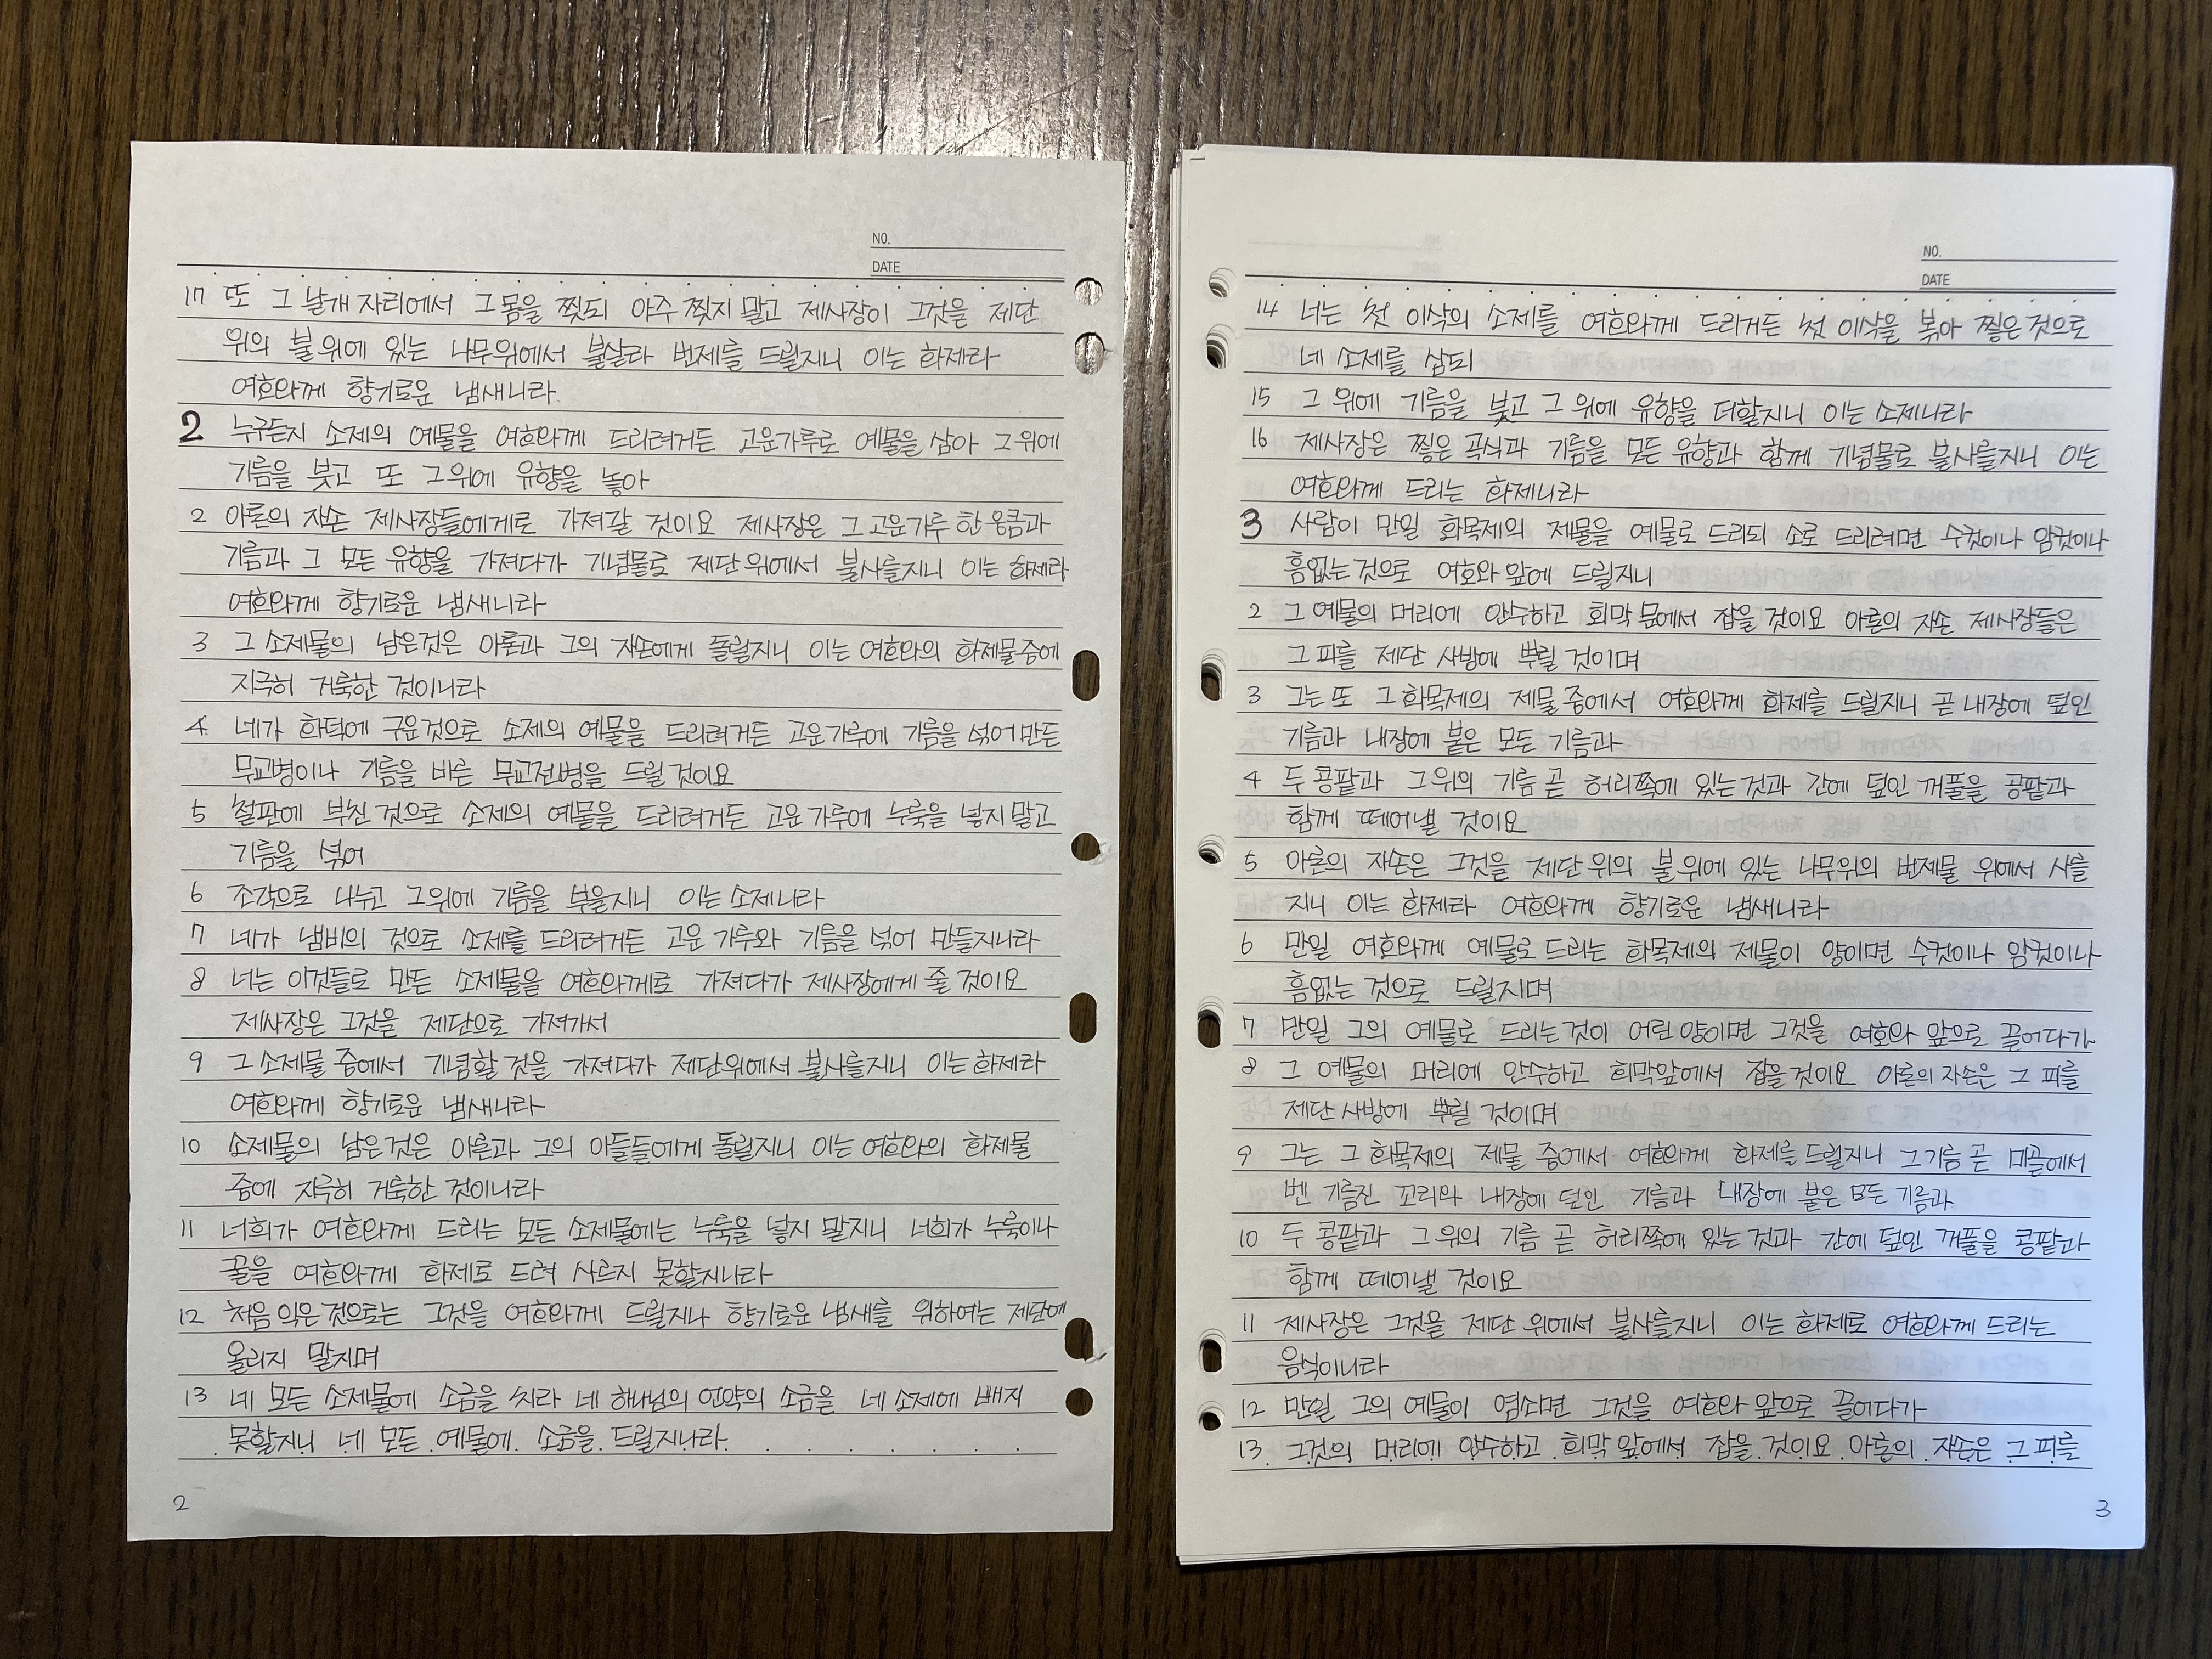 NO.
DATE
17 또 그 날개 자리에서 그 몸을 찢되 아주 찢지 말고 제사장이 그것을 제단
위의 불위에 있는 나무위에서 불살라 번제를 드릴지니 이는 화제라
여호와께 향기로운 냄새니라.
2 누구든지 소제의 예물을 여호와께 드리려거든 고운가루로 예물을 삼아 그위에
기름을 붓고 또 그위에 유향을 놓아
2 아론의 자손 제사장들에게로 가져갈 것이요 제사장은 그 고운가루 한 움큼과
기름과 그 모든 유향을 가져다가 기념물로 제단위에서 불사를지니 이는 화제라
여호와께 향기로운 냄새니라
3 그 소제물의 남은것은 아론과 그의 자손에게 돌릴지니 이는 여호와의 화제물중에
지극히 거룩한 것이니라
4 네가 화덕에 구운것으로 소제의 예물을 드리려거든 고운가루에 기름을 섞어만든
무교병이나 기름을 바른 무교전병을 드릴것이요
5 철판에 부친 것으로 소제의 예물을 드리려거든 고운 가루에 누룩을 넣지말고
기름을 섞어
6 조각으로 나누고 그위에 기름을 부을지니 이는 소제니라
7 네가 냄비의 것으로 소제를 드리려거든 고운 가루와 기름을 섞어 만들지니라
8 너는 이것들로 만든 소제물을 여호와께로 가져다가 제사장에게 줄 것이요
제사장은 그것을 제단으로 가져가서
9 그 소제물 중에서 기념할 것을 가져다가 제단위에서 불사를지니 이는 화제라
여호와께 향기로운 냄새니라
10 소제물의 남은것은 아론과 그의 아들들에게 돌릴지니 이는 여호와의 화제물
중에 지극히 거룩한 것이니라
11 너희가 여호와께 드리는 모든 소제물에는 누룩을 넣지 말지니 너희가 누룩이나
꿀을 여호와께 화제로 드려 사르지 못할지니라
12 처음 익은 것으로는 그것을 여호와께 드릴지나 향기로운 냄새를 위하여는 제단에
올리지 말지며
13 네 모든 소제물에 소금을 치라 네 하나님의 언약의 소금을 네 소제에 빼지
못할지니 네 모든 예물에 소금을 드릴지니라.
2
NO.
DATE
14 너는 첫 이삭의 소제를 여호와께 드리거든 첫 이삭을 볶아 찧은것으로
네 소제를 삼되
15 그 위에 기름을 붓고 그 위에 유향을 더할지니 이는 소제니라
16 제사장은 찧은 곡식과 기름을 모든 유향과 함께 기념물로 불사를지니 이는
여호와께 드리는 화제니라
3 사람이 만일 화목제의 제물을 예물로 드리되 소로 드리려면 수컷이나 암컷이나
흠없는것으로 여호와 앞에 드릴지니
2 그 예물의 머리에 안수하고 회막 문에서 잡을것이요 아론의 자손 제사장들은
그 피를 제단 사방에 뿌릴 것이며
3 그는 또 그 화목제의 제물중에서 여호와께 화제를 드릴지니 곧 내장에 덮인
기름과 내장에 붙은 모든 기름과
4 두 콩팥과 그위의 기름 곧 허리쪽에 있는것과 간에 덮인 꺼풀을 콩팥과
함께 떼어낼 것이요
5 아론의 자손은 그것을 제단 위의 불위에 있는 나무위의 번제물 위에서 사를
지니 이는 화제라 여호와께 향기로운 냄새니라
6 만일 여호와께 예물로 드리는 화목제의 제물이 양이면 수컷이나 암컷이나
흠없는 것으로 드릴지며
7 만일 그의 예물로 드리는것이 어린양이면 그것을 여호와 앞으로 끌어다가
8 그 예물의 머리에 안수하고 회막앞에서 잡을것이요 아론의 자손은 그 피를
제단 사방에 뿌릴 것이며
9 그는 그 화목제의 제물 중에서 여호와께 화제를 드릴지니 그기름 곧 미골에서
벤 기름진 꼬리와 내장에 덮인 기름과 내장에 붙은 모든 기름과
10 두 콩팥과 그 위의 기름 곧 허리쪽에 있는 것과 간에 덮인 꺼풀을 콩팥과
함께 떼어낼 것이요
11 제사장은 그것을 제단 위에서 불사를지니 이는 화제로 여호와께 드리는
음식이니라
12 만일 그의 예물이 염소면 그것을 여호와 앞으로 끌어다가
13. 그것의 머리에 안수하고 회막 앞에서 잡을 것이요 아론의 자손은 그 피를
3